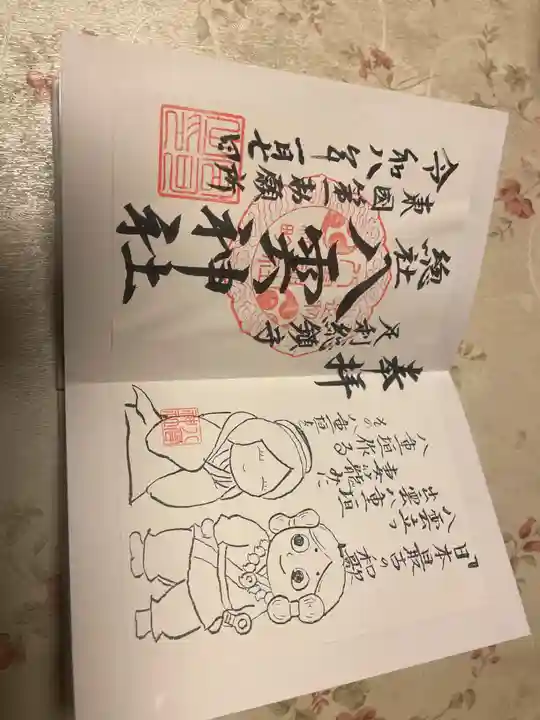 奉拝
足利総鎮守
總社
八雲神社
東國第一勅願所
令和八年一月七日
『日本最古の和歌』
八雲立つ
出雲八重垣
妻籠みに
八重垣作る
その八重垣を